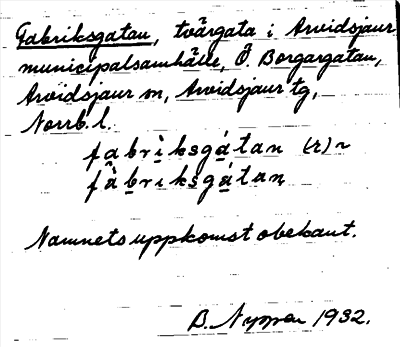 Fabriksgatan, tvärgata i Arvidsjaur
municipalsamhälle, Ö. Borgargatan,
Arvidsjaur sn, Arvidsjaur tg,
Norrb. l.
fabrìksgátan (r) ~
fàbriksgátan
Namnets uppkomst obekant.
B. 1932.